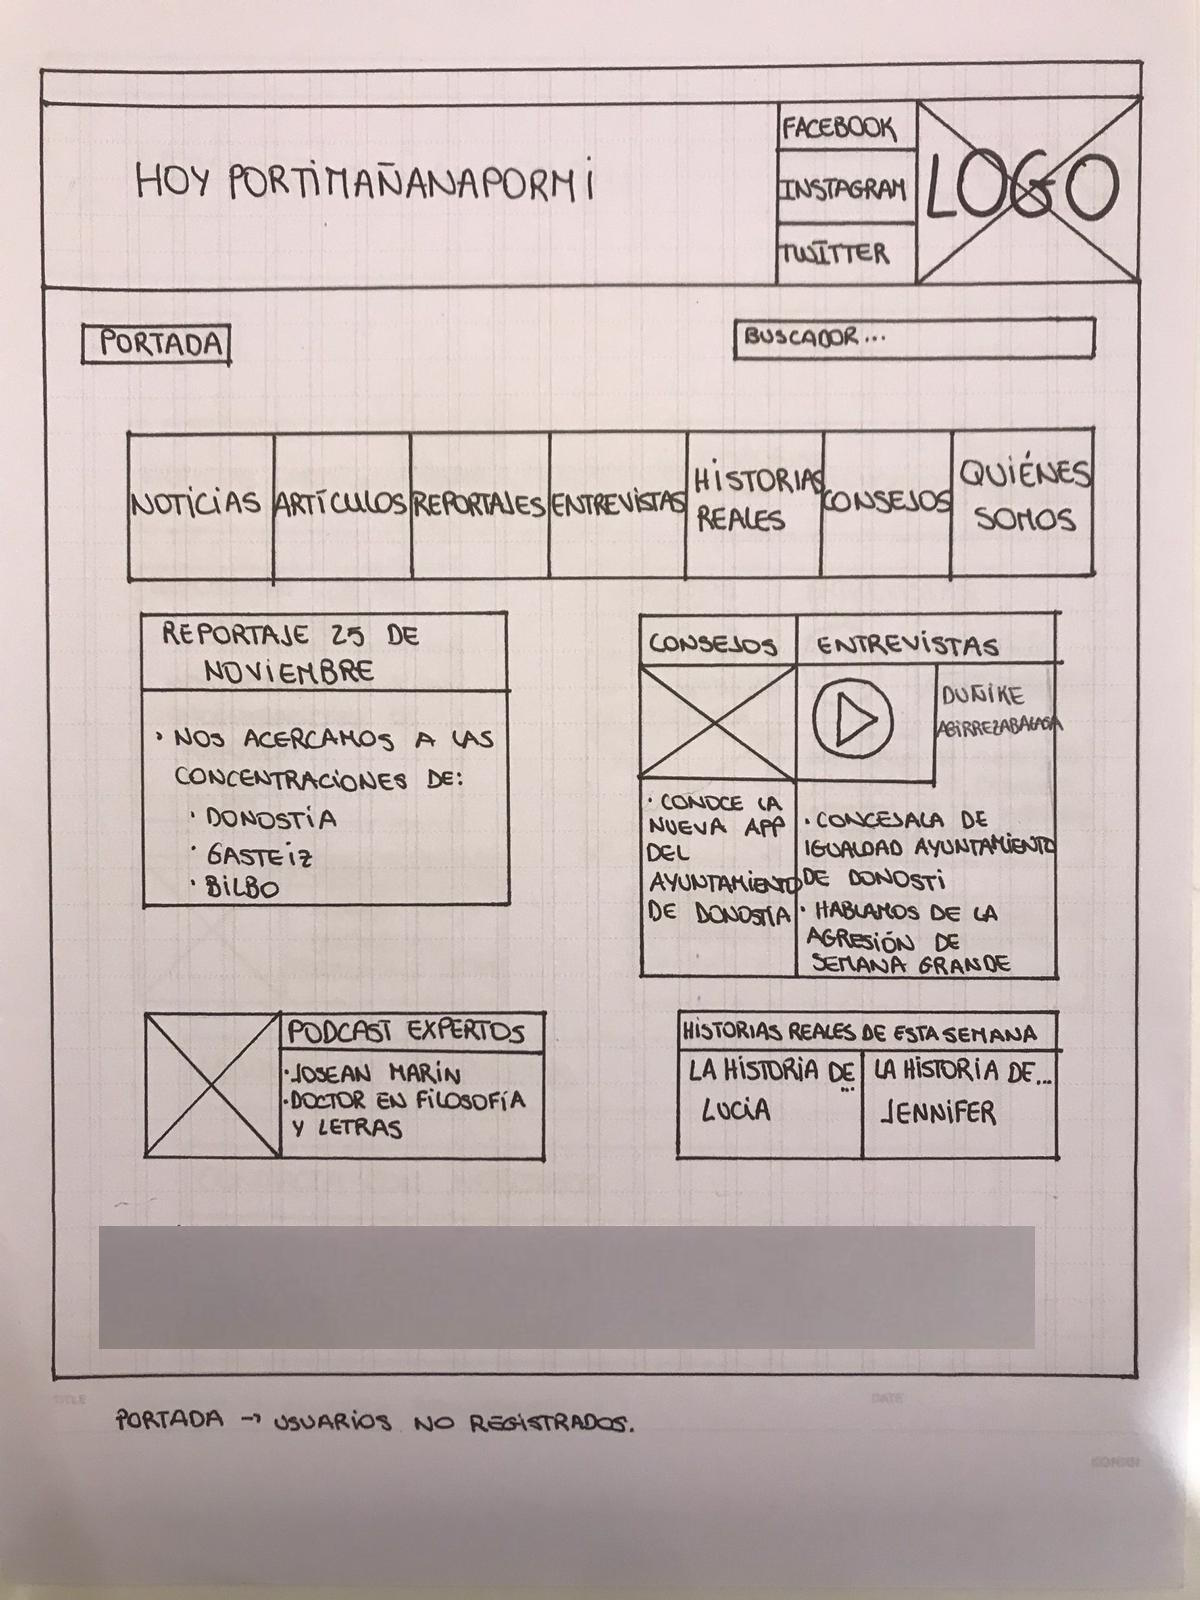 HOY PORTIMAÑANAPORMI
FACEBOOK
INSTAGRAM
TWITTER
LOGO
PORTADA
BUSCADOR...
NOTICIAS
ARTÍCULOS
REPORTAJES
ENTREVISTAS
HISTORIAS
REALES
CONSEJOS
QUIÉNES
SOMOS
REPORTAJE 25 DE
NOVIEMBRE
· NOS ACERCAMOS A LAS
CONCENTRACIONES DE:
· DONOSTIA
· GASTEIZ
· BILBO
CONSEJOS
· CONOCE LA
NUEVA APP
DEL
AYUNTAMIENTO
DE DONOSTIA
ENTREVISTAS
DUÑIKE
AGIRREZABALAGA
· CONCEJALA DE
IGUALDAD AYUNTAMIENTO
DE DONOSTI
· HABLAMOS DE LA
AGRESIÓN DE
SEMANA GRANDE
PODCAST EXPERTOS
· JOSEAN MARÍN
· DOCTOR EN FILOSOFÍA
Y LETRAS
HISTORIAS REALES DE ESTA SEMANA
LA HISTORIA DE
...
LUCÍA
LA HISTORIA DE...
JENNIFER
TITLE
DATE
PORTADA → USUARIOS NO REGISTRADOS.